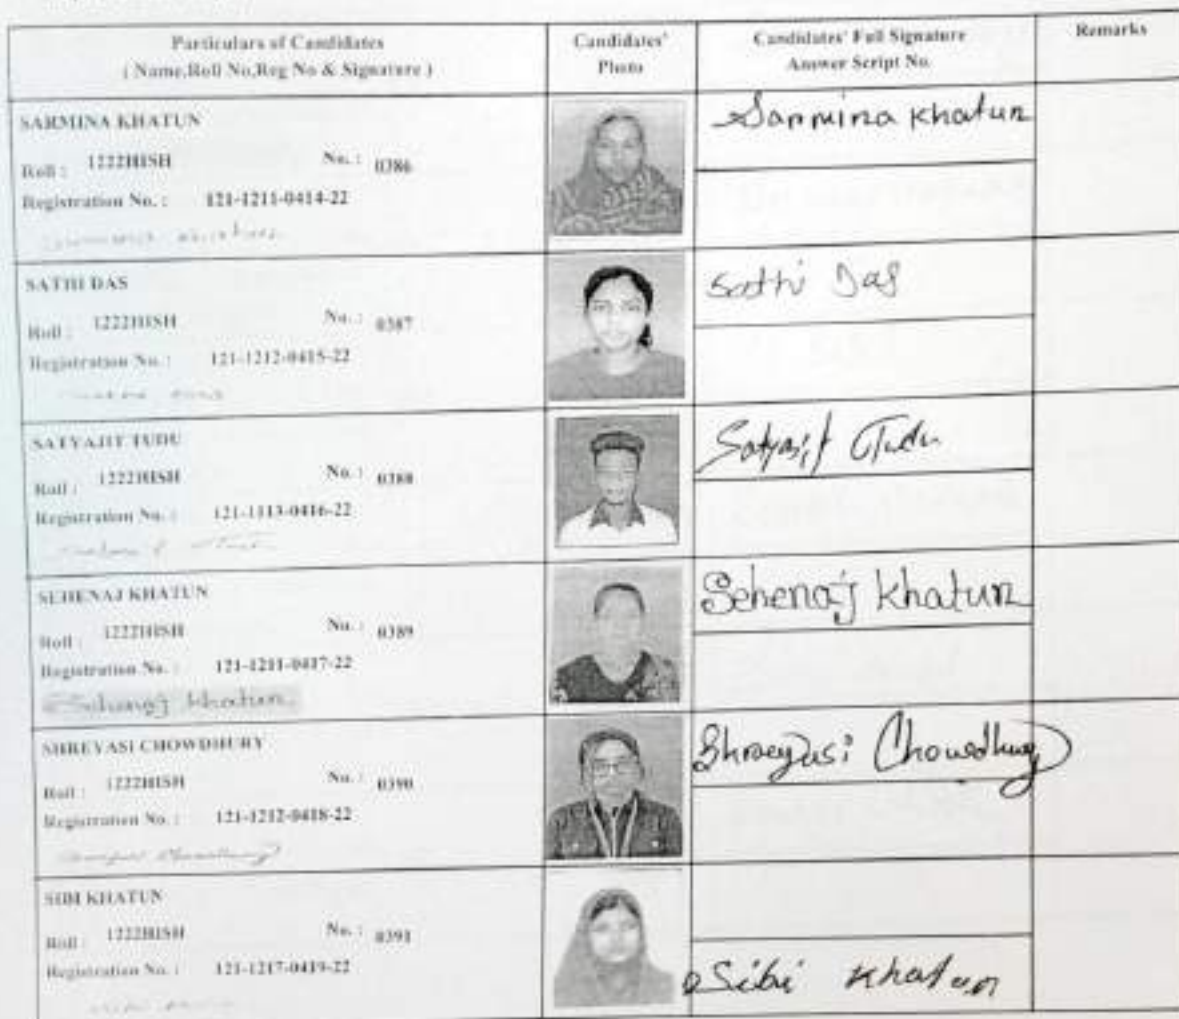 Particulars of Candidates
( Name,Roll No,Reg No & Signature )
Candidates'
Photo
Candidates' Full Signature
Answer Script No.
Remarks
SARMINA KHATUN
Roll : 1222HISH No. : 0386
Registration No. : 121-1211-0414-22
Sarmina Khatun
SATHI DAS
Roll : 1222HISH No. : 0387
Registration No. : 121-1212-0415-22
Sathi Das
SATYAJIT TUDU
Roll : 1222HISH No. : 0388
Registration No. : 121-1113-0416-22
Satyajit Tudu
SEHENAJ KHATUN
Roll : 1222HISH No. : 0389
Registration No. : 121-1211-0417-22
Sehenaj Khatun
Sehenaj Khatun
SHREYASI CHOWDHURY
Roll : 1222HISH No. : 0390
Registration No. : 121-1212-0418-22
Chowdhury
Shreyasi Chowdhury
KHATUN
Roll : 1222HISH No. : 0391
Registration No. : 121-1217-0419-22
Sibi Khatun